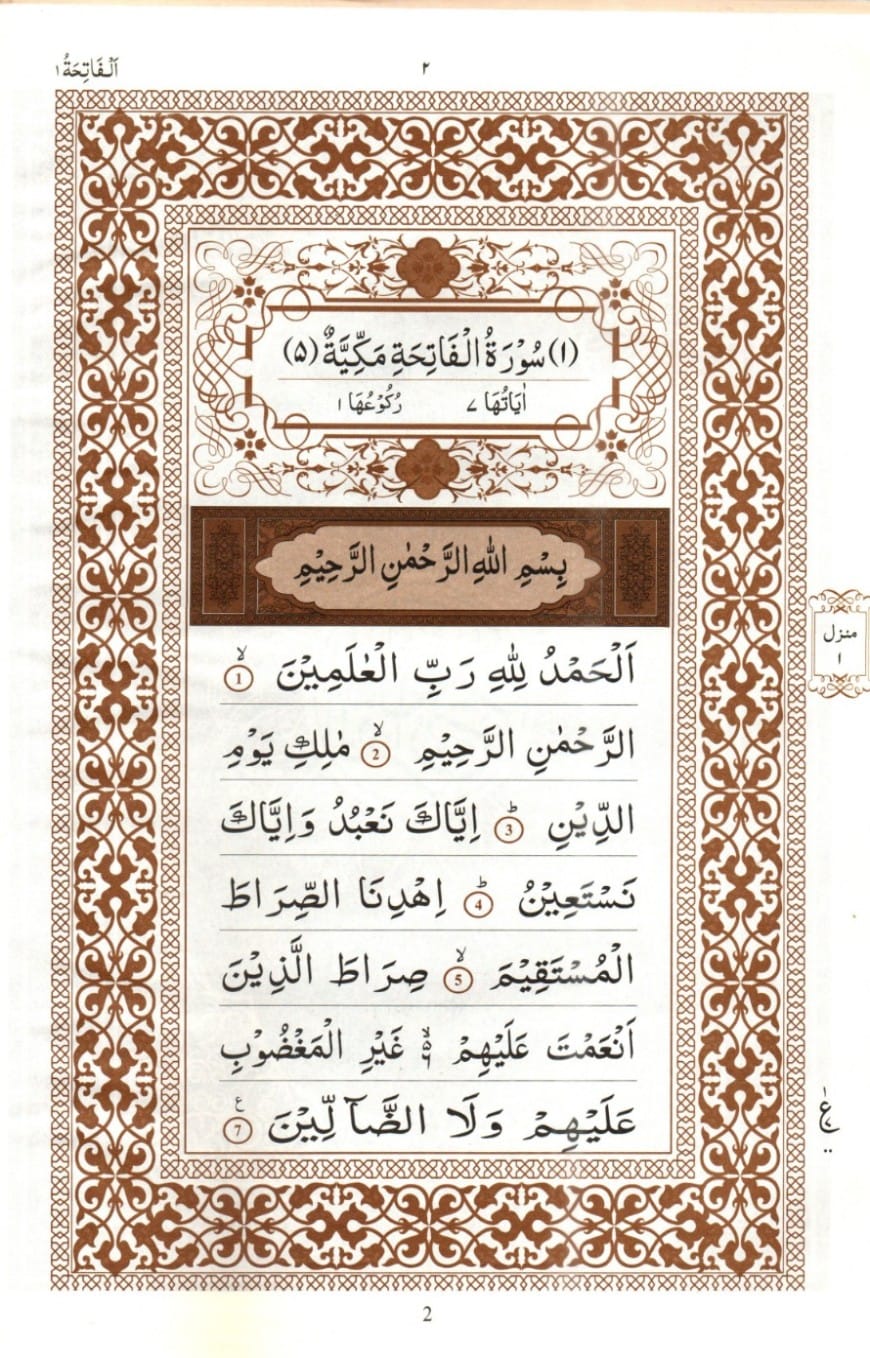 اَلْفَاتِحَةُ ۱
۲
(۱) سُوْرَةُ الْفَاتِحَةِ مَكِّيَّةٌ (۵)
اٰيَاتُهَا ۷ رُكُوْعُهَا ۱
بِسْمِ اللّٰهِ الرَّحْمٰنِ الرَّحِيْمِ
اَلْحَمْدُ لِلّٰهِ رَبِّ الْعٰلَمِيْنَ ۙ 1
الرَّحْمٰنِ الرَّحِيْمِ ۙ 2 مٰلِكِ يَوْمِ
الدِّيْنِ ؕ 3 اِيَّاكَ نَعْبُدُ وَاِيَّاكَ
نَسْتَعِيْنُ ؕ 4 اِهْدِنَا الصِّرَاطَ
الْمُسْتَقِيْمَ ۙ 5 صِرَاطَ الَّذِيْنَ
اَنْعَمْتَ عَلَيْهِمْ ۙ۬ غَيْرِ الْمَغْضُوْبِ
عَلَيْهِمْ وَلَا الضَّآلِّيْنَ ع 7
منزل
۱
2